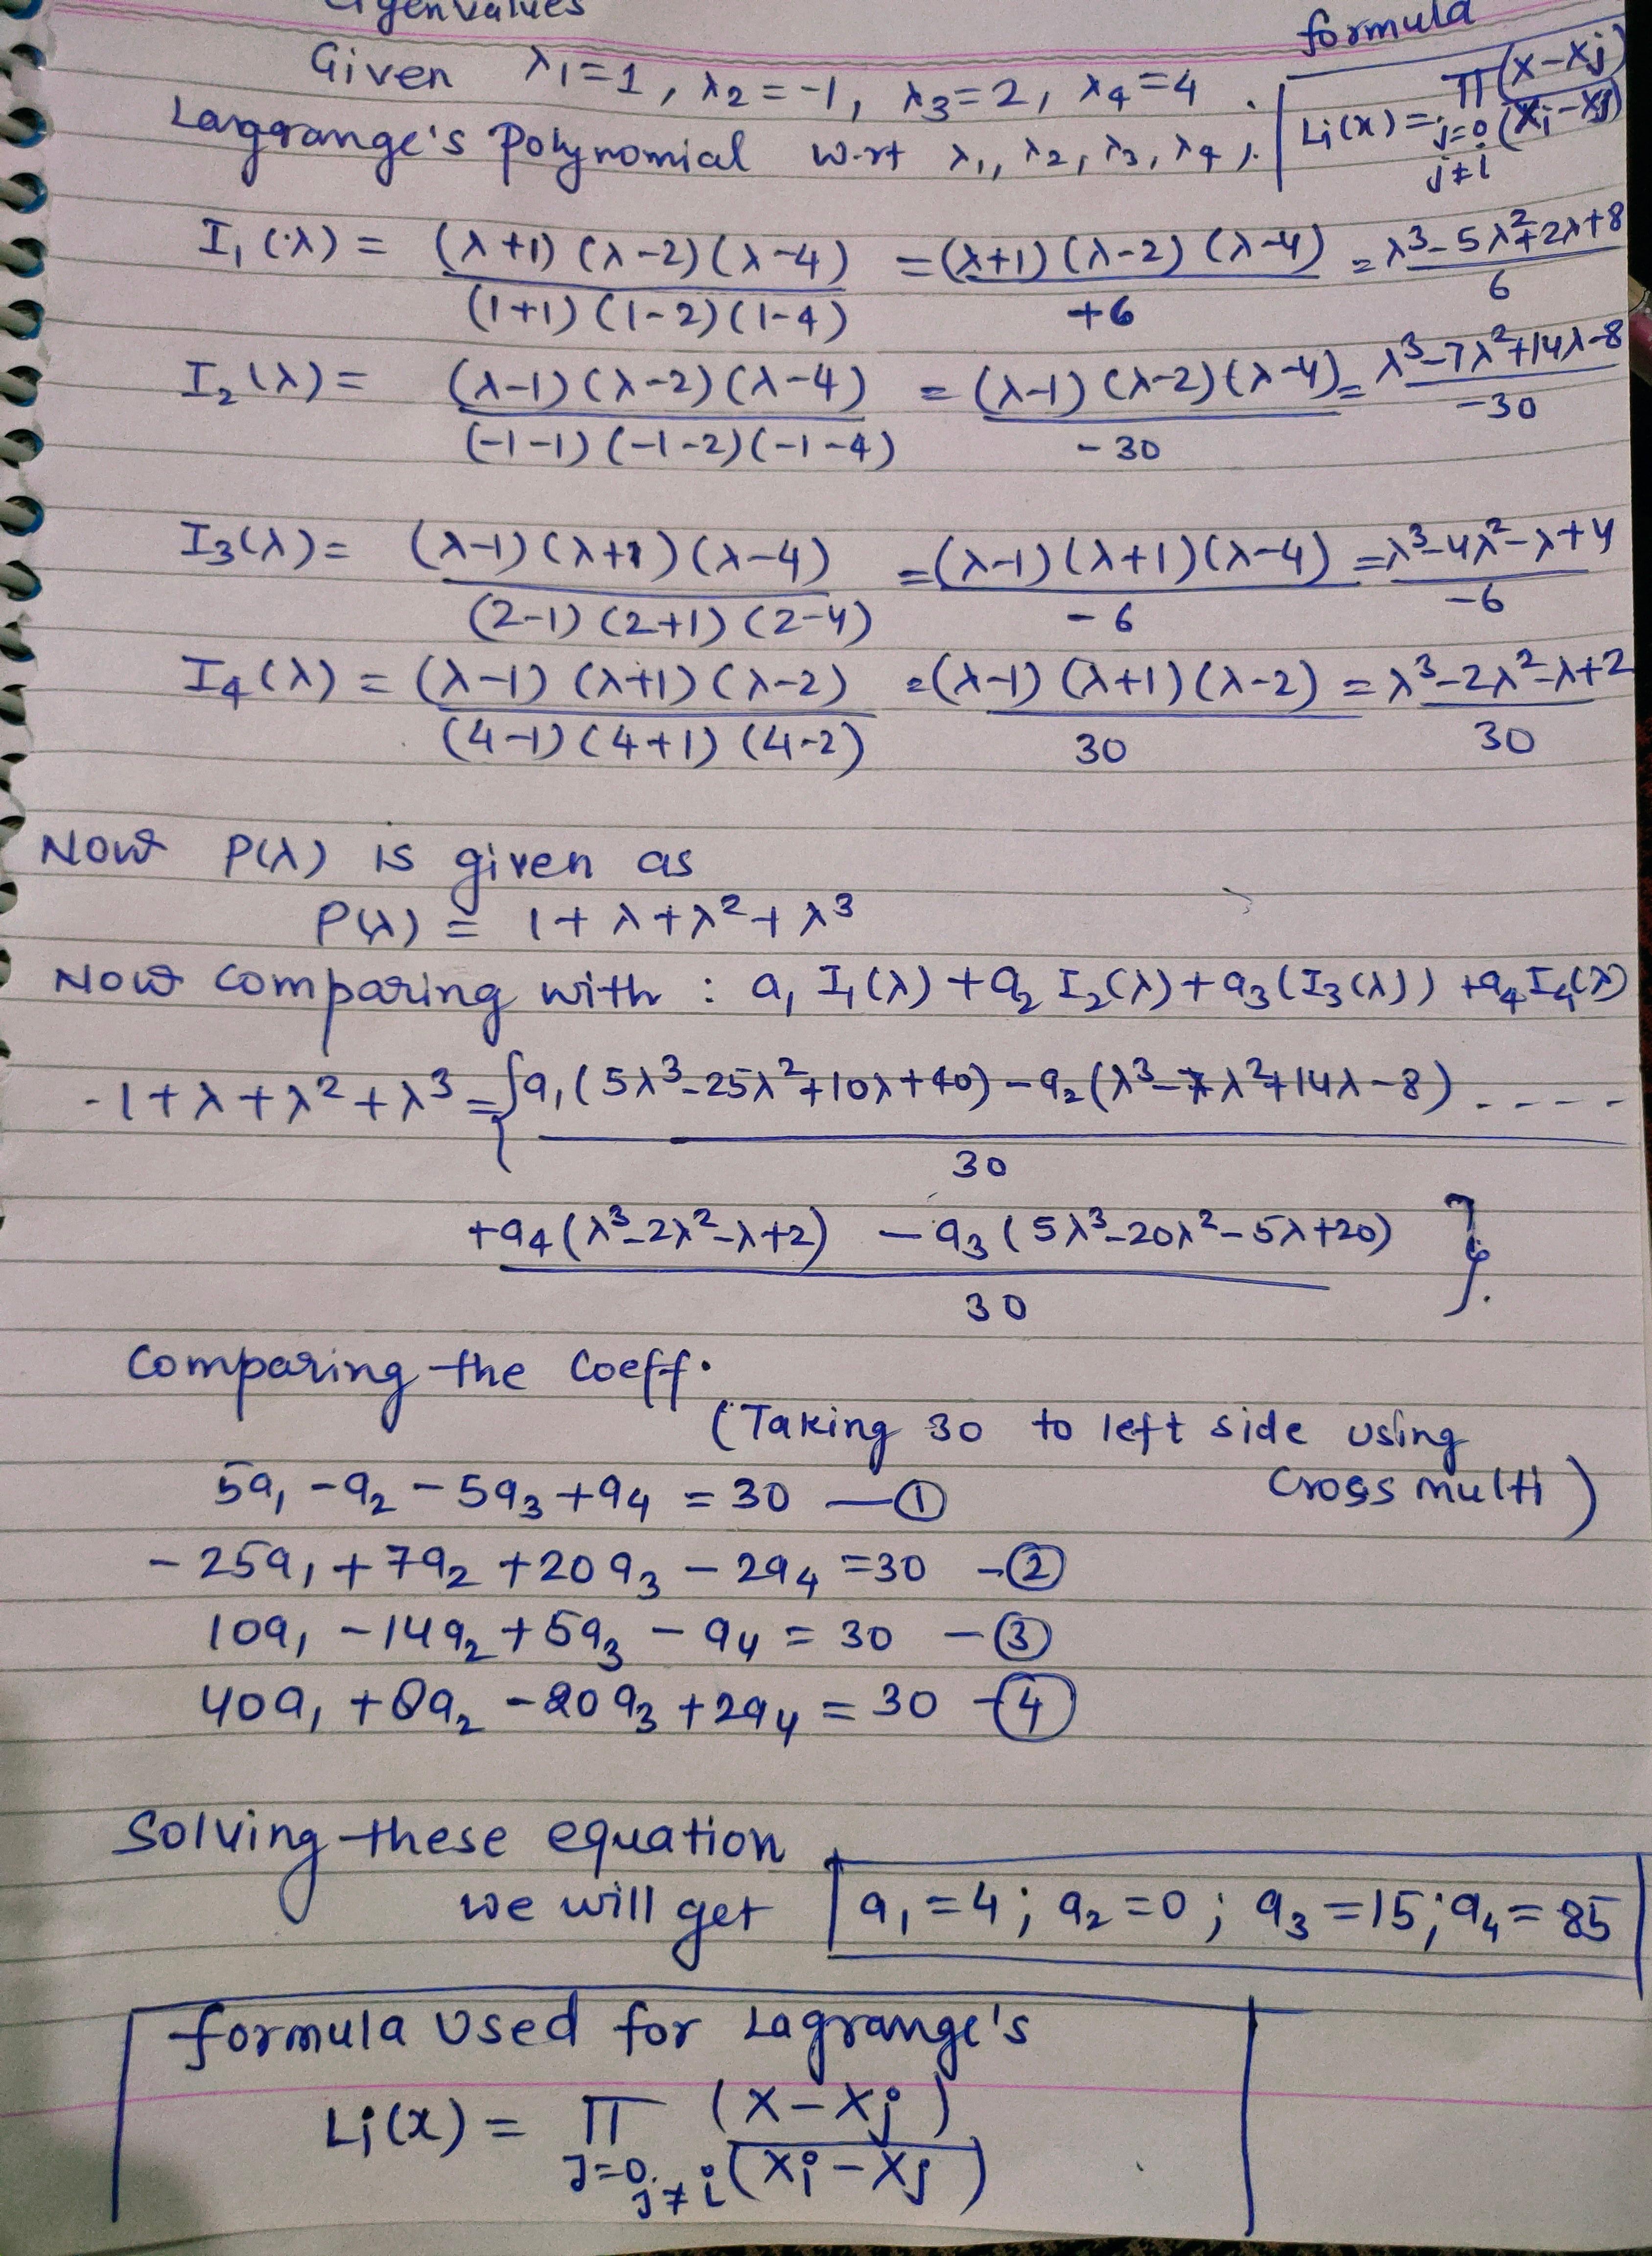 eigenvalues
Given λ1=1, λ2=-1, λ3=2, λ4=4.
formula
Li(x) = π (x-xj) / (xi-xj) j=0 j≠i
Langrange's Polynomial w.rt λ1, λ2, λ3, λ4).
I1(λ) = (λ+1)(λ-2)(λ-4) / (1+1)(1-2)(1-4) = (λ+1)(λ-2)(λ-4) / +6 = λ³-5λ²+2λ+8 / 6
I2(λ) = (λ-1)(λ-2)(λ-4) / (-1-1)(-1-2)(-1-4) = (λ-1)(λ-2)(λ-4) / -30 = λ³-7λ²+14λ-8 / -30
I3(λ) = (λ-1)(λ+1)(λ-4) / (2-1)(2+1)(2-4) = (λ-1)(λ+1)(λ-4) / -6 = λ³-4λ²-λ+4 / -6
I4(λ) = (λ-1)(λ+1)(λ-2) / (4-1)(4+1)(4-2) = (λ-1)(λ+1)(λ-2) / 30 = λ³-2λ²-λ+2 / 30
Now P(λ) is given as
P(λ) = 1+λ+λ²+λ³
Now Comparing with : a1 I1(λ) + a2 I2(λ) + a3(I3(λ)) + a4 I4(λ)
-1+λ+λ²+λ³ = { a1(5λ³-25λ²+10λ+40) - a2(λ³-7λ²+14λ-8) ---- / 30
+a4(λ³-2λ²-λ+2) - a3(5λ³-20λ²-5λ+20) / 30 }.
Comparing the Coeff.
(Taking 30 to left side using
Cross multi)
5a1 - a2 - 5a3 + a4 = 30 —①
-25a1 + 7a2 + 20a3 - 2a4 = 30 -②
10a1 - 14a2 + 5a3 - a4 = 30 -③
40a1 + 8a2 - 20a3 + 2a4 = 30 -④
Solving these equation
we will get a1=4; a2=0; a3=15; a4=85
formula Used for Lagrange's
Li(x) = π (x-xj) / (xi-xj) J=0, j≠i